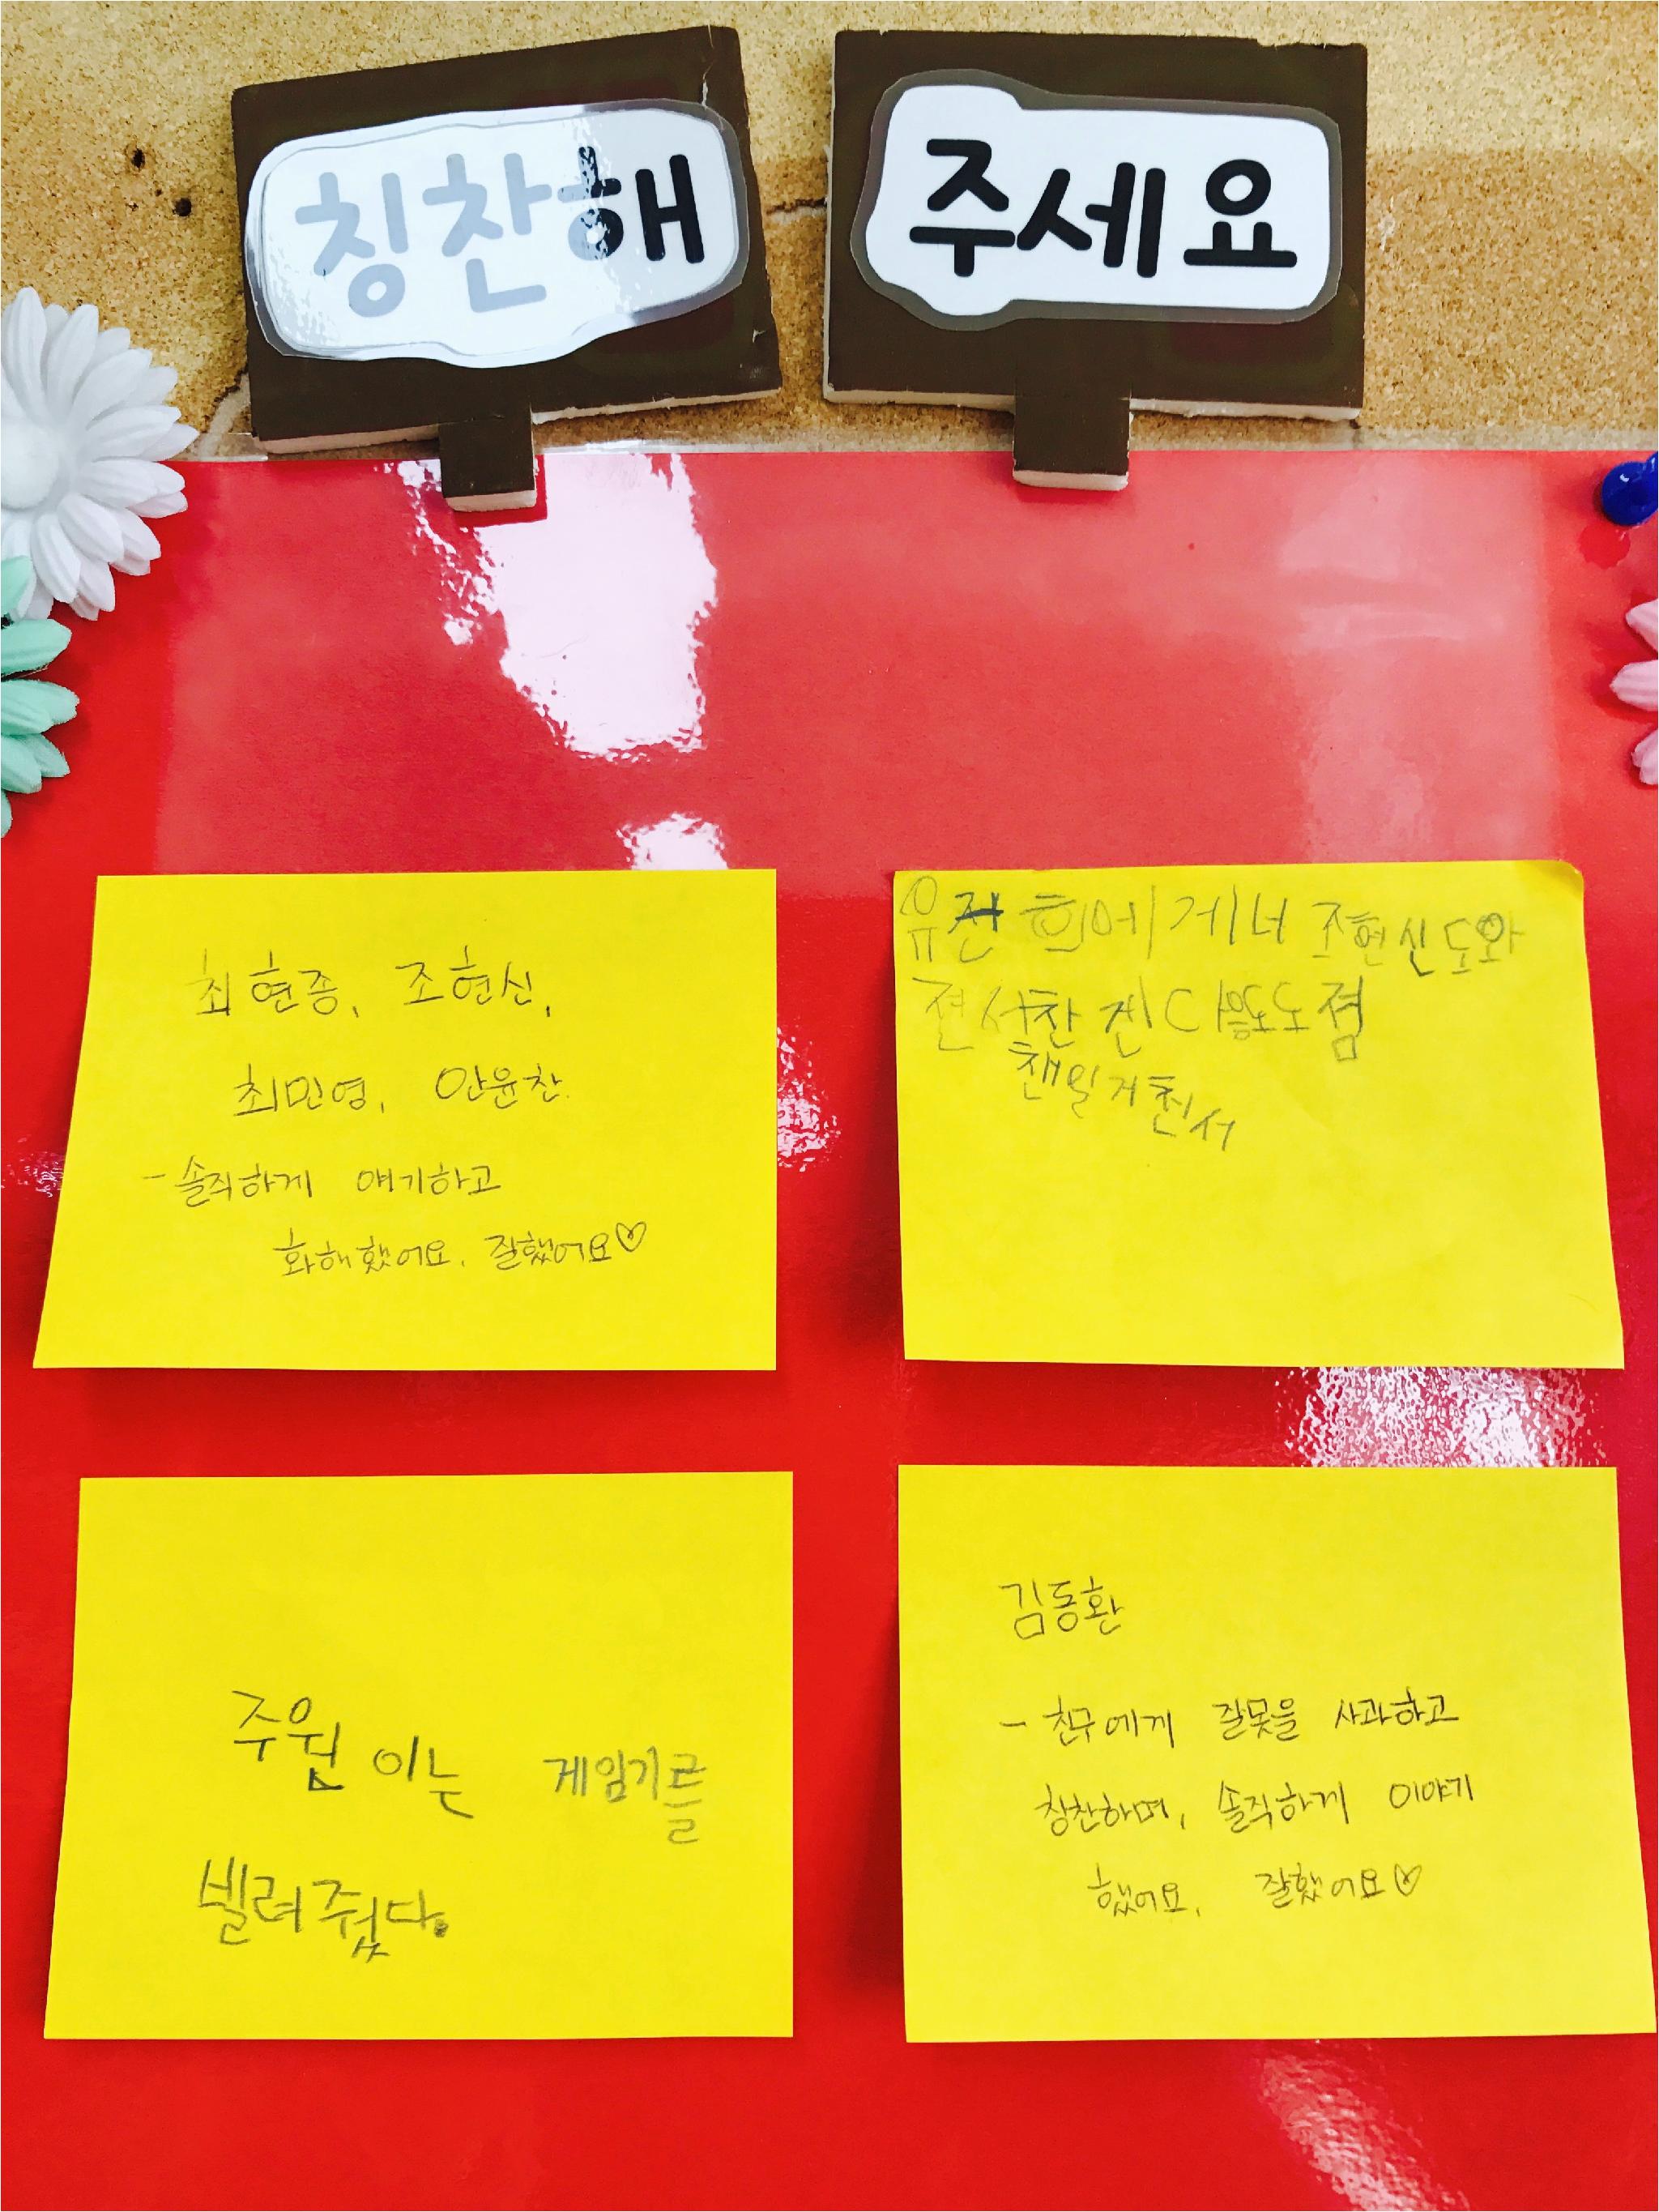 칭찬해 주세요
최현종, 조현신,
최민영, 안윤찬.
- 솔직하게 얘기하고
화해했어요. 잘했어요♡
유전희에게너 조현신도와
전서찬
주원이는 게임기를
빌려줬다.
김동환
- 친구에게 잘못을 사과하고
칭찬하며, 솔직하게 이야기
했어요. 잘했어요♡